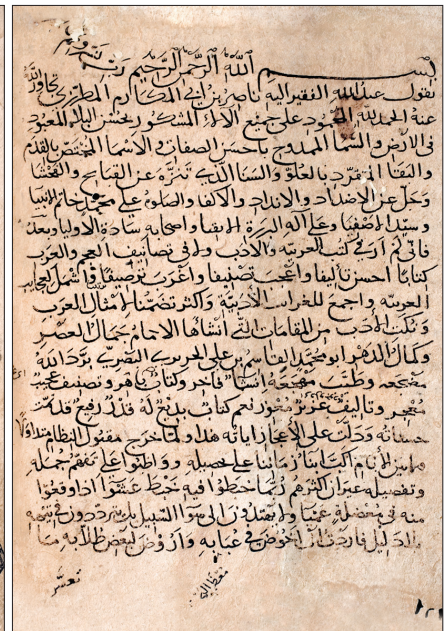 بسم الله الرحمن الرحيم رب تمم
يقول عبد الله الفقير اليه ناصر بن ابي المكارم المطرزي تجاوز الله
عنه الحمد لله المحمود على جميع الالاء المشكور بحسن البلاء المعبود
في الارض والسما الممدوح باحسن الصفات والاسما المختص بالقدم
والبقا المتفرد بالعلو والسنا الذي تنزه عن القبائح والفحشا
وجل عن الاضداد والانداد والاكفا والصلوة على محمد خاتم الانبيا
وسيد الاصفيا وعلى اله البررة الاتقيا واصحابه سادة الاوليا وبعد
فاني لم ار في كتب العربية والادب ولا في تصانيف العجم والعرب
كتابا احسن تاليفا واعجب تصنيفا واغرب ترصيفا واشمل لعجايب
العربية واجمع للغرايب الادبية واكثر تضمنا لامثال العرب
ونكت الادب من المقامات التي انشاها الامام جمال العصر
وكمال الدهر ابو محمد القاسم بن علي الحريري البصري برد الله
مضجعه وطيب مهجعه انشاء فاخر وكتاب باهر وتصنيف عجيب
معجز وتاليف عزيز معوز نعم كتاب بديع له قدر رفيع قد كثرت
حسناته ودلت على الاعجاز اياته هذا ولما خرج مقبول النظام متداولا
فيما بين الانام اكب ابنا زماننا على تحصيله وواظبوا على تفهم جمله
وتفصيله غير ان اكثرهم ربما خبطوا فيه خبط عشوا اذا وقعوا
منه في معضلة عميا ولا يهتدون الى سوا السبيل بل يترددون في تيهه
بلا دليل فاردت ان اخوض في عبابه واروض لبعض طلابه ما
تعسر